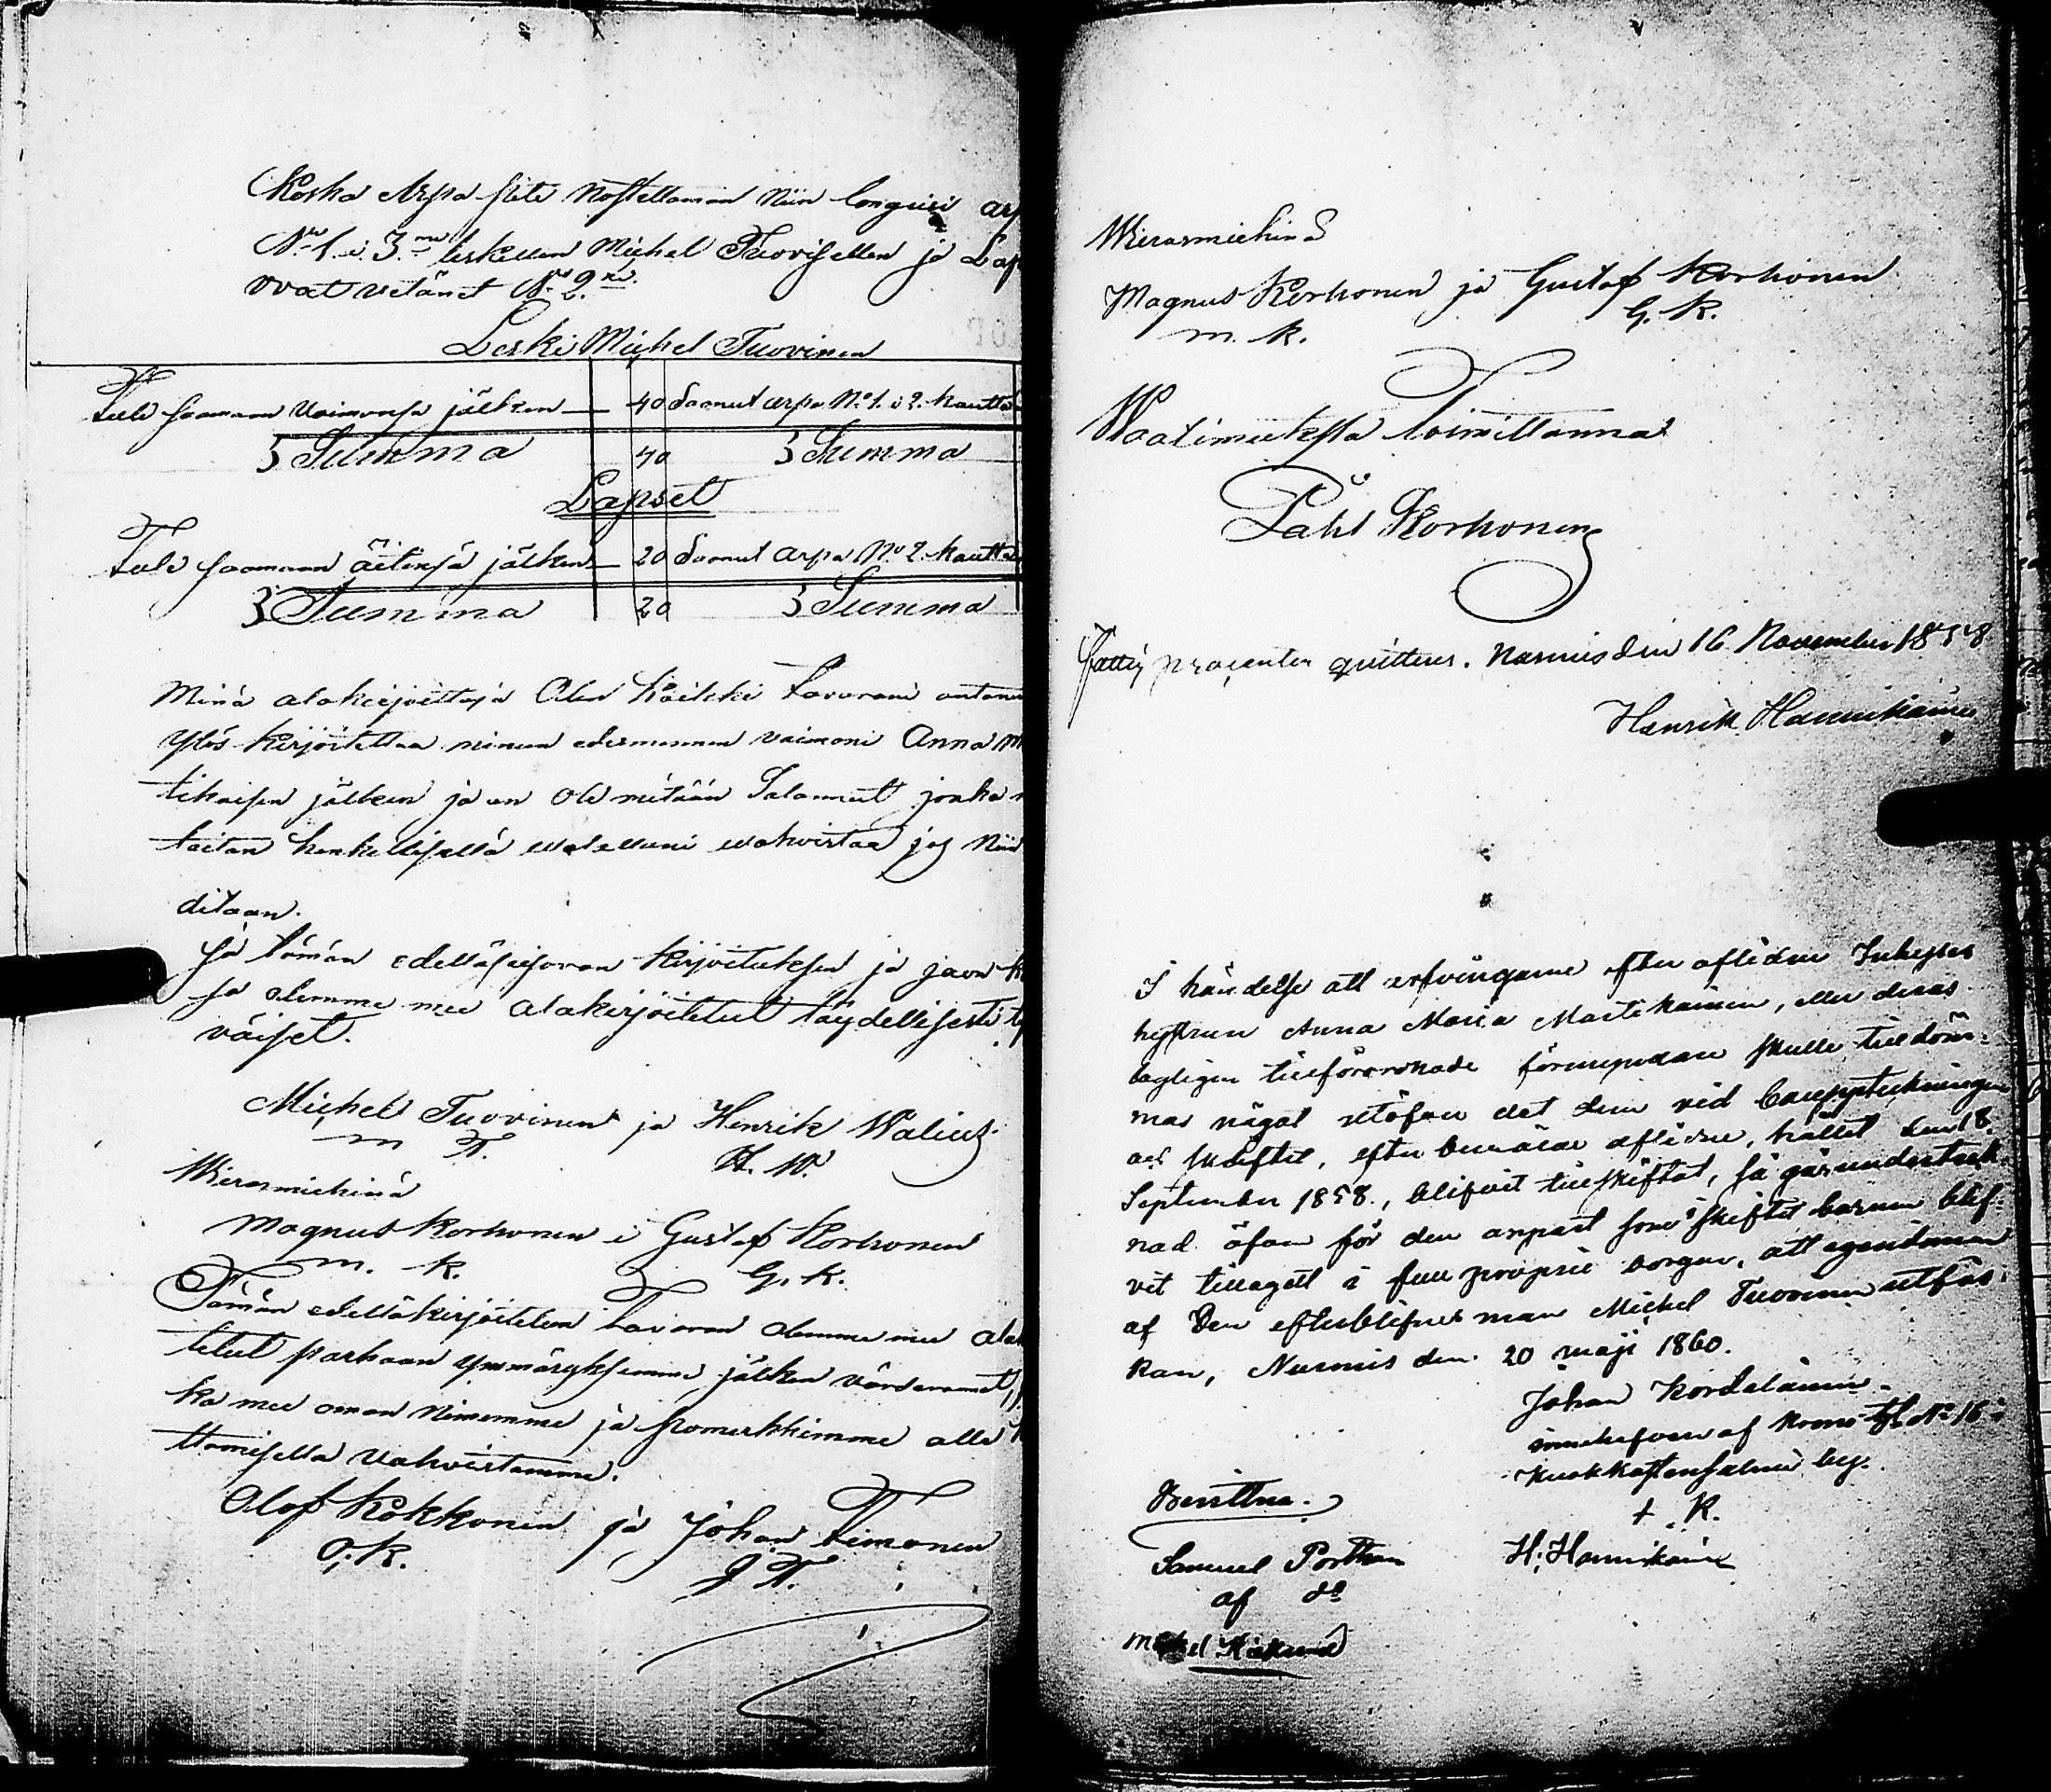 Koska Arpa Piti Nostettaman Niin longeisi arp
No 1. i 3.me leskellen Michel Tuovisellen ja Lap
ovat vetänet No 2.xi.
Leski Michel Tuovinen
Tule saamaan Vaimonsa jälken 40 Saanut arpa No 1. i 2. kautta
Summa 40 Summa
Lapset
Tule saamaan äitinsä jälken 20 Saanut Arpa No 2. kautta
Summa 20 Summa
Minä alakirjoittaja Olen kaikki tavarani antanu
Ylös kirjoitettaa minun edesmennen vaimoni Anna M
tikaisen jälken ja en Ole mitään Salannut jonka
taitan henkellisellä valallani wahvistaa jos Niin
ditaan.
Ja tämän edelläseisovan kirjoituksen ja jaon
sa olemme mee alakirjoitetut täydellisesti ty
väiset.
Michel Tuovinen ja Henrik Walius
m T. H. W.
Wierasmiehinä
Magnus Korhonen i Gustaf Korhonen
m. K. G. K.
Tämän edelläkirjoitetun tavaran olemme mee alak
tetut parhaan ymmäryksemme jälken värderannet,
ka mee oman Nimemme ja puomerkkimme alla
ttamisella vahvistamme.
Olof Kokkonen ja Johan Timonen
O; K. J T.
Wierasmiehinä
Magnus Korhonen ja Gustaf Korhonen
m. K. G. K.
Waatimuksesta toimittanna
Påhl Korhonen
Fattig procenten quitteras. Nurmis den 16 November 1858
Henrik Hannikainen
I händelse att arfvingarne efter aflidne Inhyses
hustrun Anna Maria Martikainen, eller deras
lagligen tillförordnade förmyndare skulle tilldöm-
mas något utöfver det dem vid bouppteckningen
och skiftet, efter bemälde aflidne, hållet den 18.
September 1858., blifvit tillskiftat, så går undterteck-
nad äfven för den arfpart som i skiftet barnen blif-
vit tillagdt i full proprie borgen, att egendomen
af Den efterblifne man Michel Tuovinen utfås
kan, Nurmis den 20 maji 1860.
Johan Kordelainen
innehafvare af Krono tfl. No 16 i
Kuokkastensalmi by.
+ K.
Bevittna.
Samuel Porthan H: Hannikainen
af do